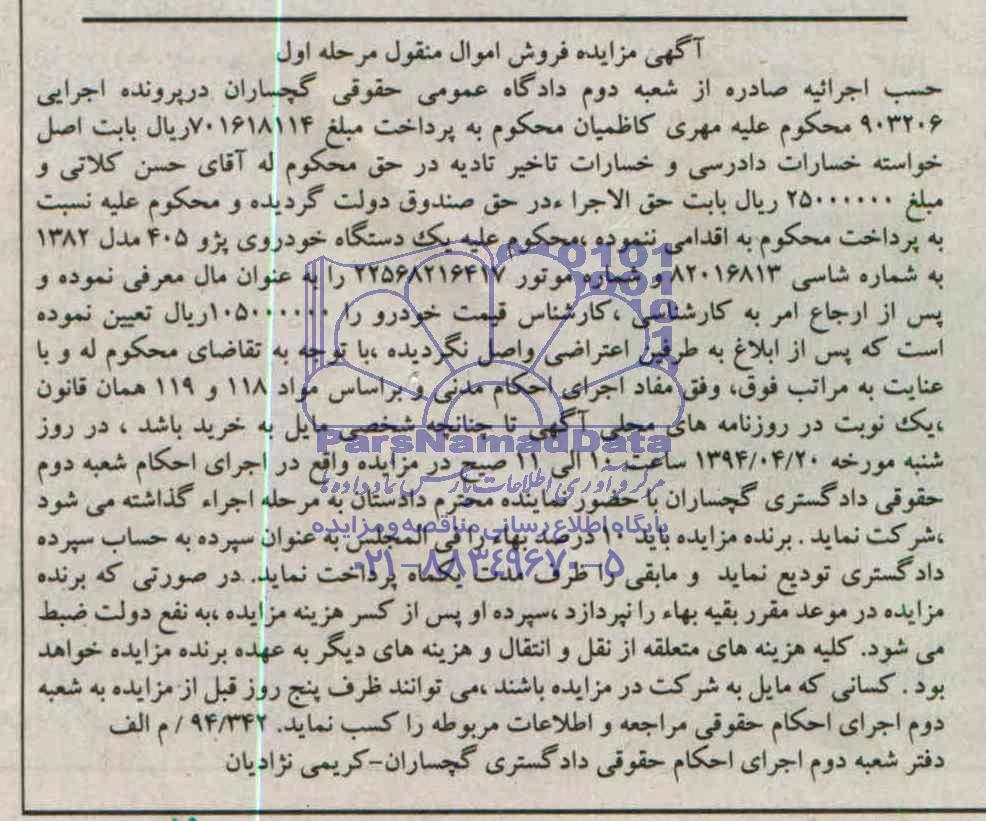 آگهی مزایده فروش اموال منقول مرحله اول
حسب اجرائیه صادره از شعبه دوم دادگاه عمومی حقوقی گچساران درپرونده اجرایی
۹۰۳۲۰۶ محکوم علیه مهری کاظمیان محکوم به پرداخت مبلغ ۷۰۱۶۱۸۱۱۴ریال بابت اصل
خواسته خسارات دادرسی و خسارات تاخیر تادیه در حق محکوم له آقای حسن کلاتی و
مبلغ ۲۵۰۰۰۰۰۰ ریال بابت حق الاجرا ءدر حق صندوق دولت گردیده و محکوم علیه نسبت
به پرداخت محکوم به اقدامی ننموده ،محکوم علیه یک دستگاه خودروی پژو ۴۰۵ مدل ۱۳۸۲
به شماره شاسی ۸۲۰۱۶۸۱۳ و شماره موتور ۲۲۵۶۸۲۱۶۴۱۷ را به عنوان مال معرفی نموده و
پس از ارجاع امر به کارشناسی ،کارشناس قیمت خودرو را ۱۰۵۰۰۰۰۰۰ریال تعیین نموده
است که پس از ابلاغ به طرفین اعتراضی واصل نگردیده ،با توجه به تقاضای محکوم له و با
عنایت به مراتب فوق، وفق مفاد اجرای احکام مدنی و براساس مواد ۱۱۸ و ۱۱۹ همان قانون
،یک نوبت در روزنامه های محلی آگهی تا چنانچه شخصی مایل به خرید باشد ، در روز
شنبه مورخه ۱۳۹۴/۰۴/۲۰ ساعت ۱۰ الی ۱۱ صبح در مزایده واقع در اجرای احکام شعبه دوم
حقوقی دادگستری گچساران با حضور نماینده محترم دادستان به مرحله اجراء گذاشته می شود
،شرکت نماید . برنده مزایده باید ۱۰ درصد بهاء را فی المجلس به عنوان سپرده به حساب سپرده
دادگستری تودیع نماید و مابقی را ظرف مدت یکماه پرداخت نماید. در صورتی که برنده
مزایده در موعد مقرر بقیه بهاء را نپردازد ،سپرده او پس از کسر هزینه مزایده ،به نفع دولت ضبط
می شود. کلیه هزینه های متعلقه از نقل و انتقال و هزینه های دیگر به عهده برنده مزایده خواهد
بود . کسانی که مایل به شرکت در مزایده باشند ،می توانند ظرف پنج روز قبل از مزایده به شعبه
دوم اجرای احکام حقوقی مراجعه و اطلاعات مربوطه را کسب نماید. ۹۴/۳۴۲ / م الف
دفتر شعبه دوم اجرای احکام حقوقی دادگستری گچساران-کریمی نژادیان
ParsNamadData
مرکز فرآوری اطلاعات پارس نماد داده ها
پایگاه اطلاع رسانی مناقصه و مزایده
۰۲۱-۸۸۳۴۹۶۷۰-۵